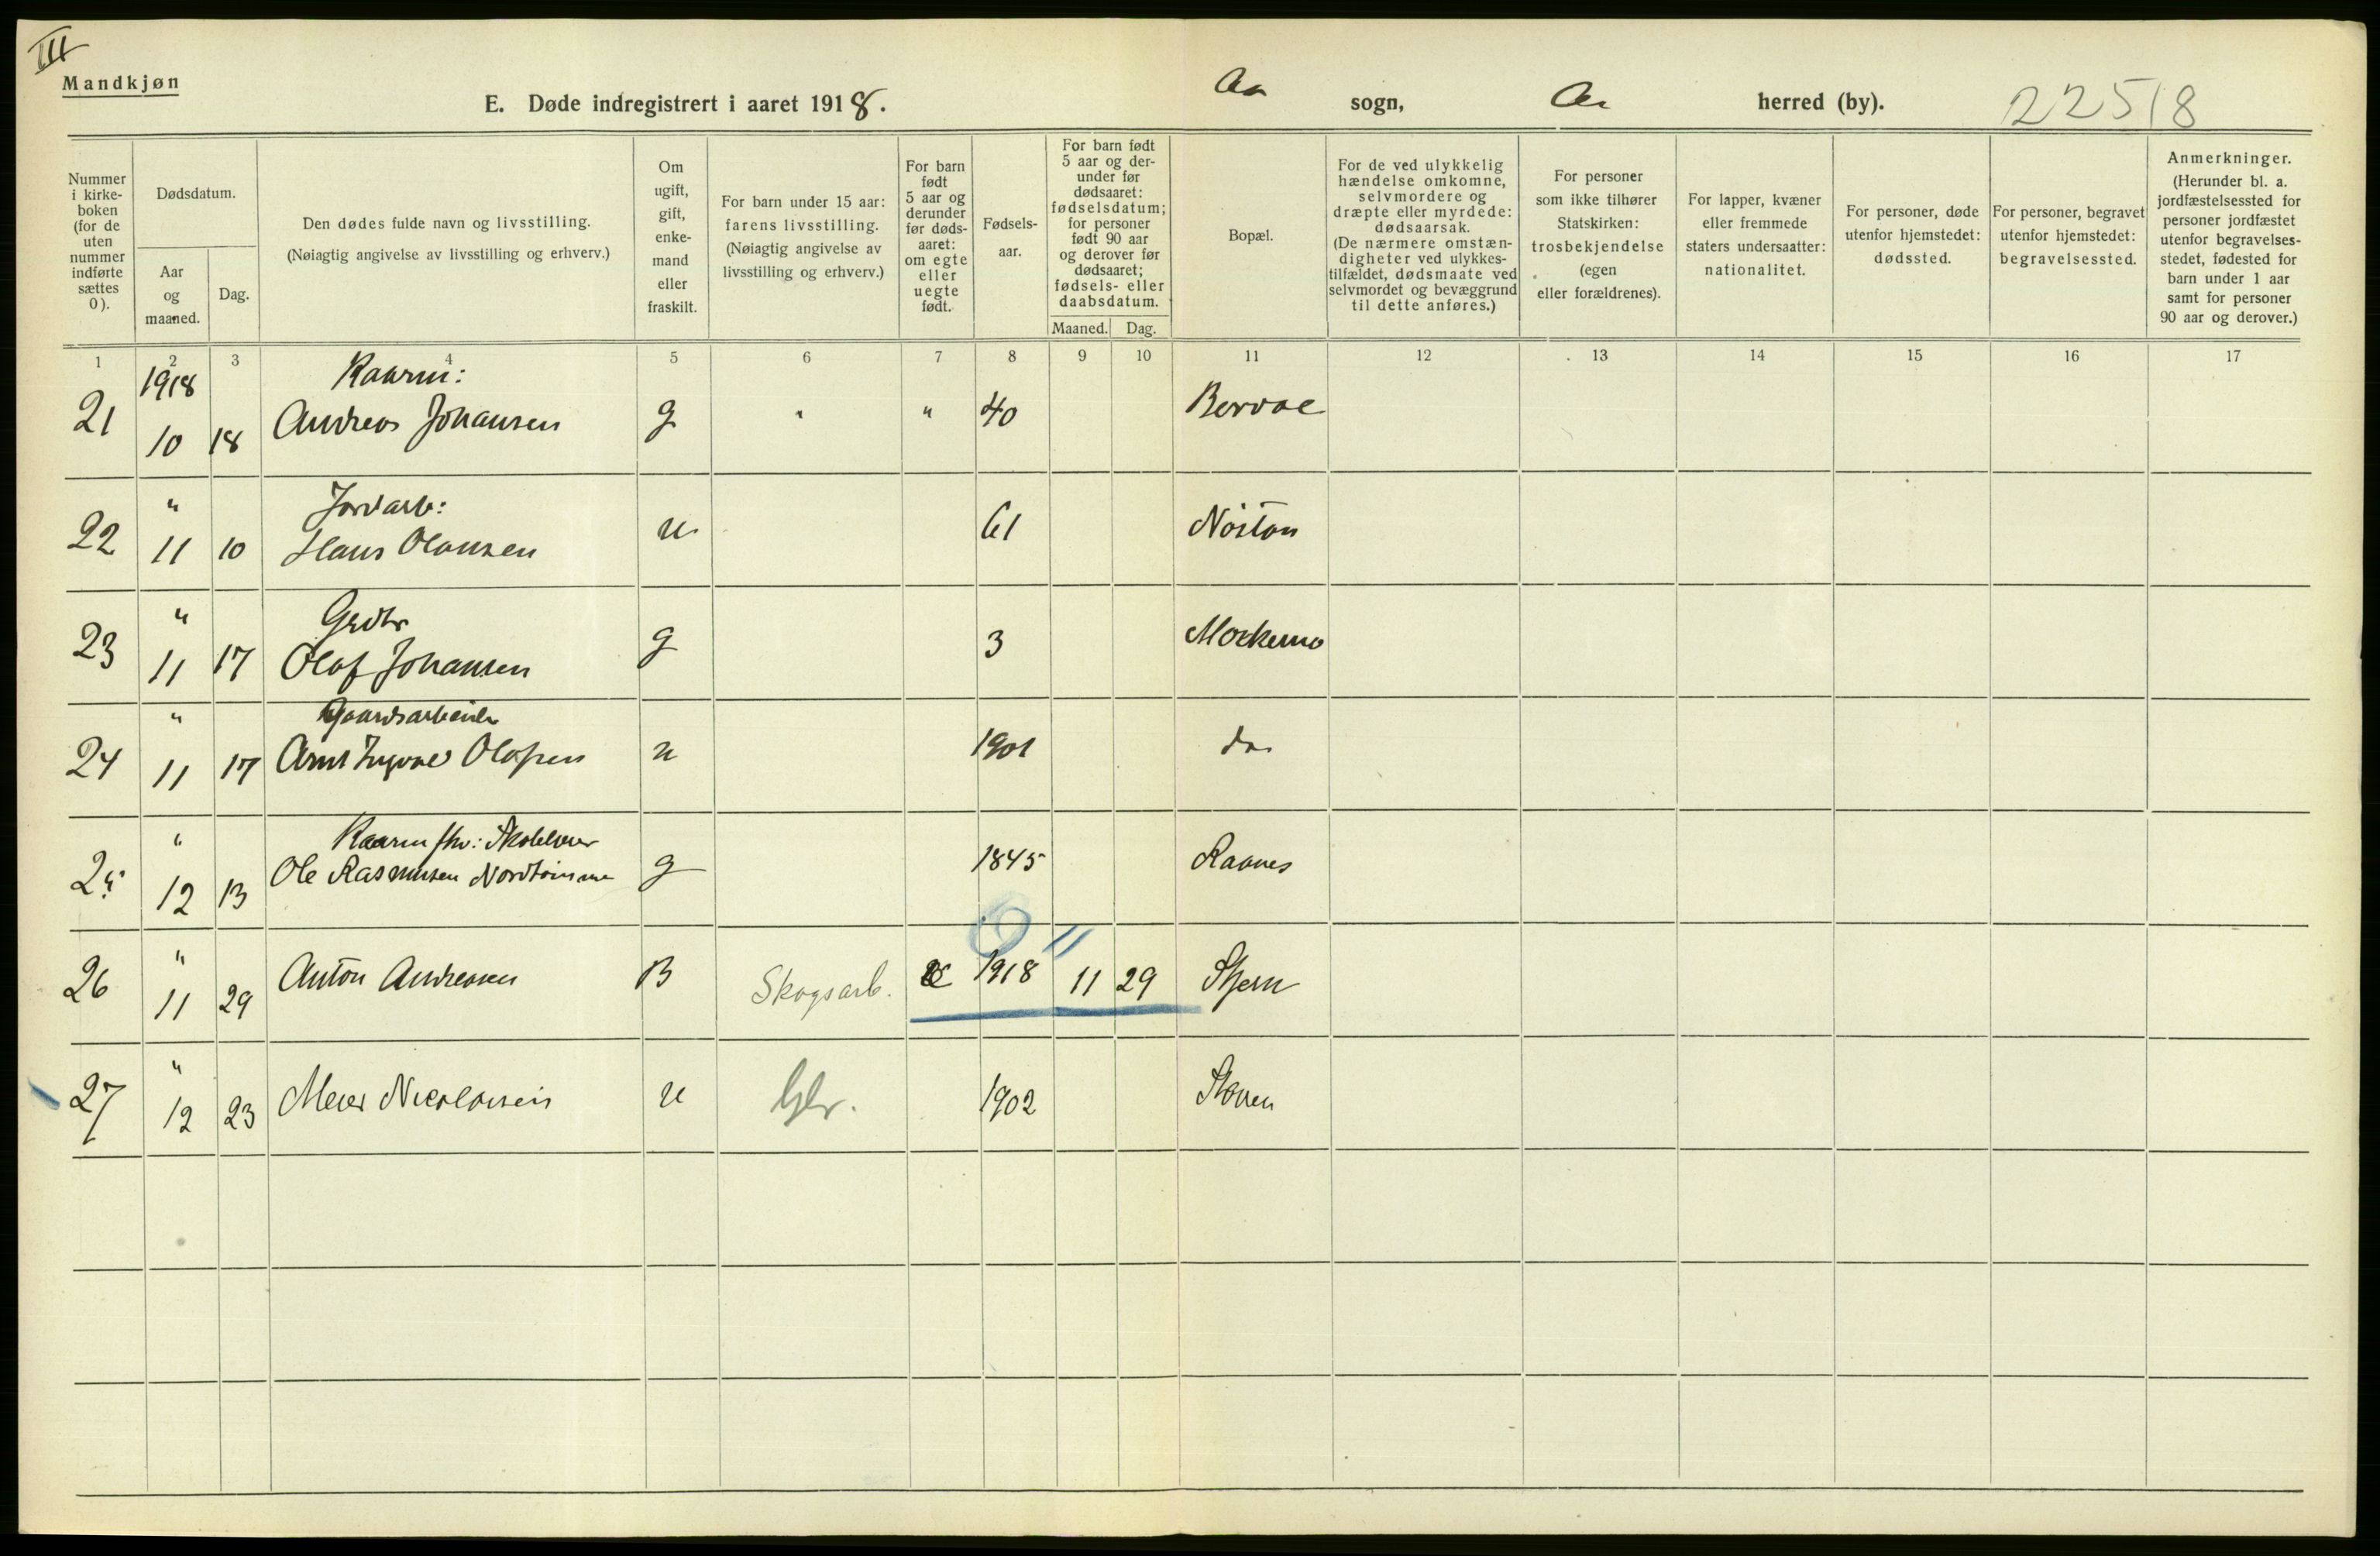 III
Mandkjøn
E. Døde indregistrert i aaret 1918.
Aa sogn, Aa herred (by).
22518
Nummer i kirke-boken (for de uten nummer indførte sættes 0).
Dødsdatum.
Aar og maaned.
Dag.
Den dødes fulde navn og livsstilling.
(Nøiagtig angivelse av livsstilling og erhverv.)
Om ugift, gift, enke-mand eller fraskilt.
For barn under 15 aar: farens livsstilling. (Nøiagtig angivelse av livsstilling og erhverv.)
For barn født 5 aar og derunder før døds-aaret: om egte eller uegte født.
Fødsels-aar.
For barn født 5 aar og der-under før dødsaaret: fødselsdatum; for personer født 90 aar og derover før dødsaaret; fødsels- eller daabsdatum.
Maaned. Dag.
Bopæl.
For de ved ulykkelig hændelse omkomne, selvmordere og dræpte eller myrdede: dødsaarsak. (De nærmere omstæn-digheter ved ulykkes-tilfældet, dødsmaate ved selvmordet og bevæggrund til dette anføres.)
For personer som ikke tilhører Statskirken: trosbekjendelse (egen eller forældrenes).
For lapper, kvæner eller fremmede staters undersaatter: nationalitet.
For personer, døde utenfor hjemstedet: dødssted.
For personer, begravet utenfor hjemstedet: begravelsessted.
Anmerkninger. (Herunder bl. a. jordfæstelsessted for personer jordfæstet utenfor begravelses-stedet, fødested for barn under 1 aar samt for personer 90 aar og derover.)
1 2 3 4 5 6 7 8 9 10 11 12 13 14 15 16 17
1918 Kaarm:
21 10 18 Andreas Johansen g " " 40 Bervae
" Jordarb:
22 11 10 Hans Olausen u 61 Nöstan
" Grdbr
23 11 17 Olaf Johansen g 3 Mockemo
" Gaardsarbeider
24 11 17 Arnt Ingvae Olafsen u 1901 do.
" Kaarm fhv: Skolelærer
25 12 13 Ole Rasmusen g 1845 Raanes
"
26 11 29 Anton Andreasen B Skogsarb. 1918 11 29 Stjern
"
27 12 23 Meier Nicolaisen u Gbr. 1902 Staven